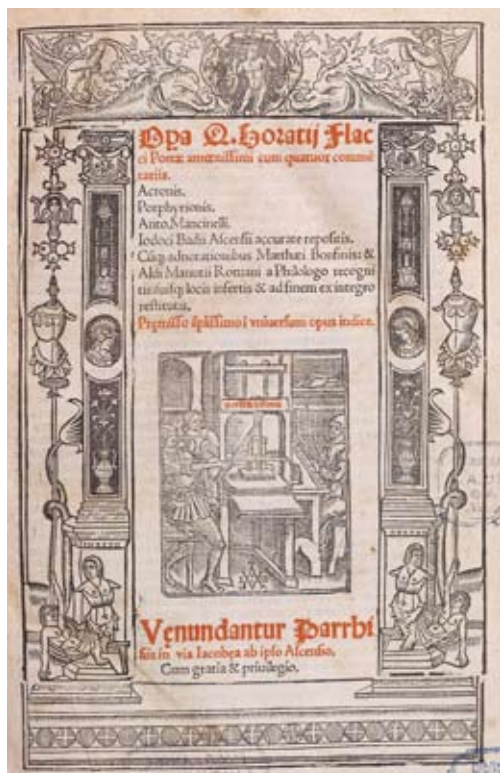 Opa Q. Horatij Flac
ci Poetæ amœnissimi cum quatuor commẽ
tariis.
Acronis.
Porphyrionis.
Anto. Mancinelli.
Iodoci Badii Ascensii accurate repositis.
Cũq; adnotationibus Matthæi Bonfinis: &
Aldi Manutii Romani a Philologo recogni
tis suisq; locis insertis & ad finem ex integro
restitutis.
Præmisso ĩ vniuersum opus indice.
Venundantur Parrhi
siis in via Iacobea ab ipso Ascensio.
Cum gratia & priuilegio.